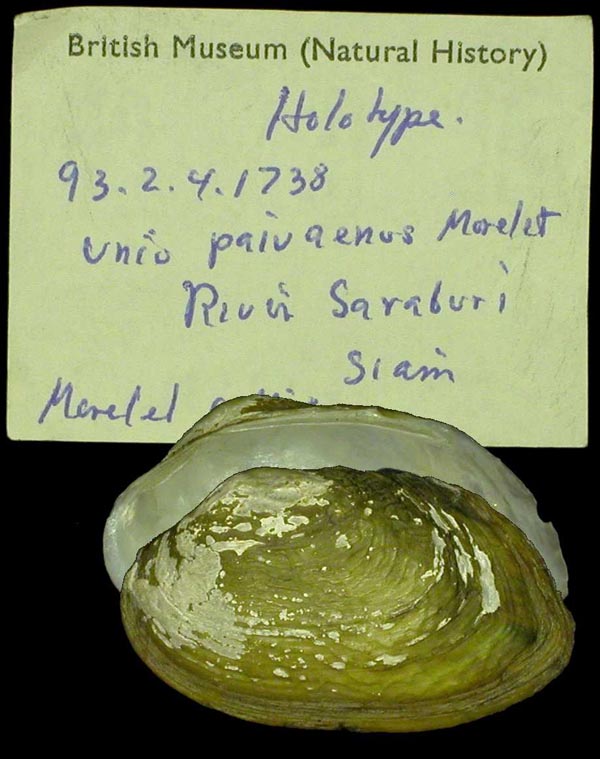 British Museum (Natural History)
Holotype.
93.2.4.1738
Unio paivaenus Morelet
River Saraburi
Siam
Morelet